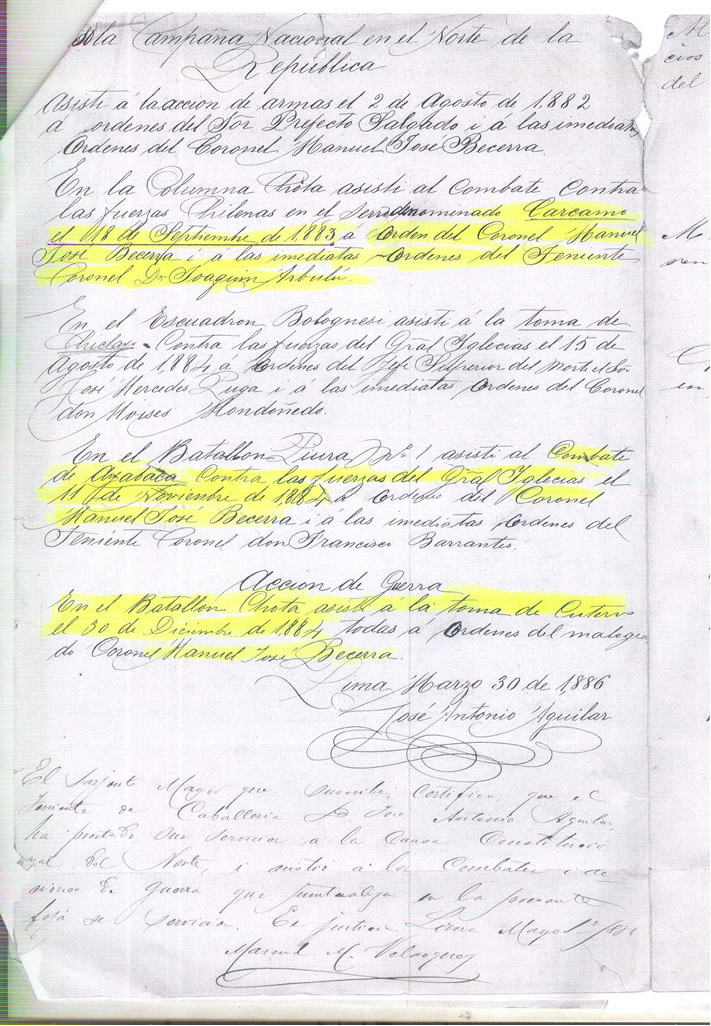 la Campaña Nacional en el Norte de la
República
Asisti á la accion de armas el 2 de Agosto de 1.882
á ordenes del Sor Prefecto Salgado i á las imediatas
Ordenes del Coronel Manuel José Becerra.
En la Columna Chota asisti al Combate Contra
las fuerzas Chilenas en el denominado Carcamo
el 18 de Septiembre de 1.883, a Orden del Coronel Manuel
José Becerra i á las imediatas Ordenes del Teniente
Coronel Dn Joaquin Arbulú.
En el Escuadron Bolognesi asisti á la toma de
Chiclayo Contra las fuerzas del Gral Iglesias el 15 de
Agosto de 1.884 á Ordenes del Jefe Superior del Norte el Sor
José Mercedes Puga i á las imediatas Ordenes del Coronel
don Moises Mondoñedo.
En el Batallon Piura Nº 1 asisti al Combate
de Contra las fuerzas del Gral Iglesias el
11 de Noviembre de 1.884 a Ordenes del Coronel
Manuel José Becerra i á las imediatas Ordenes del
Teniente Coronel don Francisco Barrantes.
Accion de Guerra
En el Batallon Chota asisti á la toma de Cutervo
el 30 de Diciembre de 1.884 todas á Ordenes del malogra
do Coronel Manuel José Becerra.
Lima Marzo 30 de 1,886
José Antonio Aguilar
El Sarjento Mayor que suscribe, Certifica que el
Teniente de Caballeria D. José Antonio Aguilar,
ha prestado sus servicios á la Causa Constitucio
nal del Norte, i asistió á los Combates i ac
ciones de guerra que puntualiza en la presente
foja de servicios. Es justicia Lima Mayo
Manuel M. Velasquez
M
cios
del
M
en